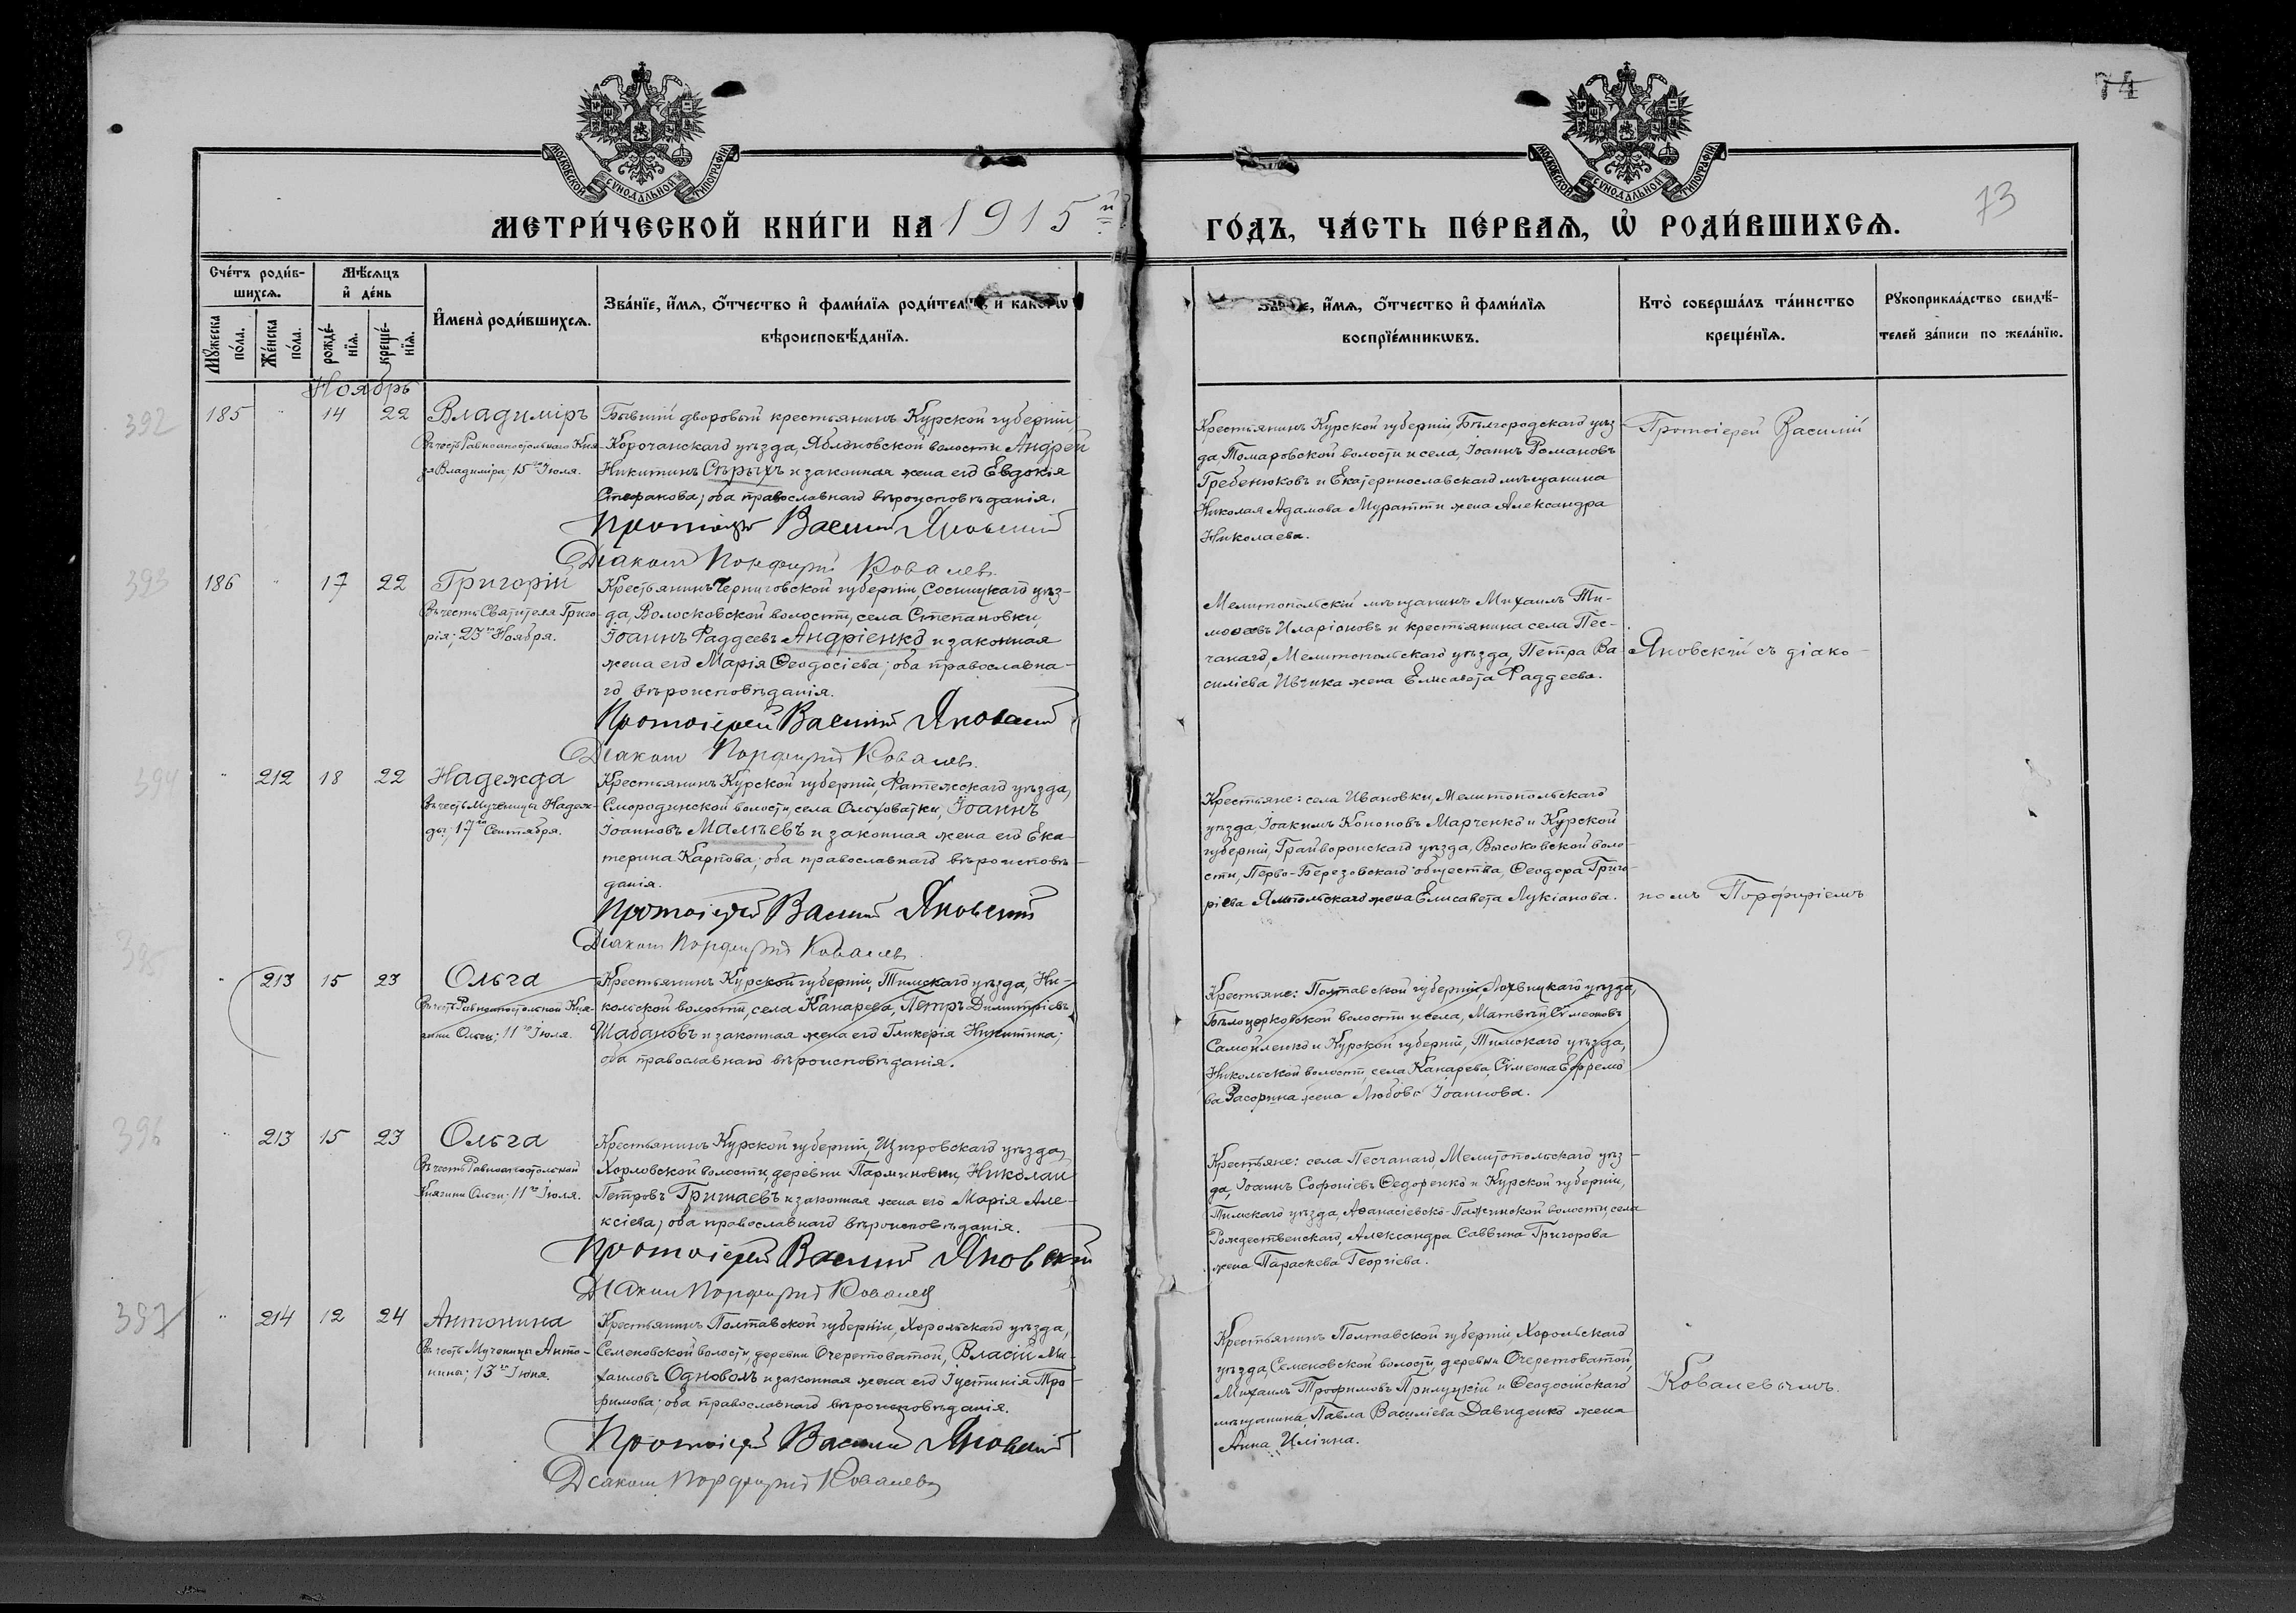 74
73
МОСКОВСКОЙ СѴНОДАЛЬНОЙ ТИПОГРАФІИ
МОСКОВСКОЙ СѴНОДАЛЬНОЙ ТИПОГРАФІИ
МЕТРИ́ЧЕСКОЙ КНИ́ГИ НА 1915й ГО́ДЪ, ЧА́СТЬ ПЕ́РВАЯ, Ѡ҆ РОДИ́ВШИХСЯ.
Сче́тъ роди́в-
шихся.
Мѣ́сяцъ
и҆ де́нь
Мꙋ́жеска по́ла.
Же́нска по́ла.
рожде́-
нїя.
креще́-
нїя.
И҆мена̀ роди́вшихся.
Зва́нїе, и҆́мя, о҆́тчество и҆ фами́лїя роди́телей, и како́гѡ
вѣроисповѣ́данїя.
Зва́нїе, и҆́мя, о҆́тчество и҆ фами́лїя
воспрїе́мникѡвъ.
Кто̀ соверша́лъ та́инство
креще́нїя.
Рꙋкоприкла́дство свидѣ́-
телей за́писи по жела́нїю.
Ноябрь
392
185 " 14 22 Владиміръ
Въ честь Равноапостольнаго Кня-
зя Владиміра; 15го Іюля.
Бывшій дворовый крестьянинъ Курской губерніи,
Корочанскаго уѣзда, Яблоновской волости Андрей
Никитинъ Сѣрыхъ и законная жена его Евдокія
Стефанова; оба православнаго вѣроисповѣданія.
Протоіерей Василій Яновскій
Діаконъ Порфирій Ковалевъ
Крестьянинъ Курской губерніи, Бѣлгородскаго уѣз-
да Томаровской волости и села, Іоаннъ Романовъ
Гребенюковъ и Екатеринославскаго мѣщанина
Николая Адамова Муратти жена Александра
Николаева.
Протоіерей Василій
393
186 " 17 22 Григорій
Въ честь Святителя Григо-
рія; 23го Ноября.
Крестьянинъ Черниговской губерніи, Сосницкаго уѣз-
да, Волосковской волости, села Степановки,
Іоаннъ Фаддеевъ Андріенко и законная
жена его Марія Ѳеодосіева; оба православна-
го вѣроисповѣданія.
Протоіерей Василій Яновскій
Діаконъ Порфирій Ковалевъ
Мелитопольскій мѣщанинъ Михаилъ Ти-
моѳеевъ Иларіоновъ и крестьянина села Пес-
чанаго, Мелитопольскаго уѣзда, Петра Ва-
силіева Ивчика жена Елисавета Фаддеева.
Яновскій съ діако-
394
" 212 18 22 Надежда
Въ честь Мученицы Надеж-
ды; 17го Сентября.
Крестьянинъ Курской губерніи, Фатежскаго уѣзда,
Смородинской волости, села Ольховатки, Іоаннъ
Іоанновъ Малѣевъ и законная жена его Ека-
терина Карпова; оба православнаго вѣроисповѣ-
данія.
Протоіерей Василій Яновскій
Діаконъ Порфирій Ковалевъ
Крестьяне: села Ивановки, Мелитопольскаго
уѣзда, Іоакимъ Кононовъ Марченко и Курской
губерніи, Грайворонскаго уѣзда, Высоковской воло-
сти, Перво-Березовскаго общества, Ѳеодора Григо-
ріева Ямпольскаго жена Елисавета Лукіанова.
номъ Порфиріемъ
395
" 213 15 23 Ольга
Въ честь Равноапостольной Кня-
гини Ольги; 11го Іюля.
Крестьянинъ Курской губерніи, Тимскаго уѣзда, Ни-
кольской волости, села Канарева, Петръ Димитріевъ
Шабановъ и законная жена его Гликерія Никитина;
оба православнаго вѣроисповѣданія.
Крестьяне: Полтавской губерніи, Лохвицкаго уѣзда,
Бѣлоцерковской волости и села, Матвѣй Сѵмеоновъ
Самойленко и Курской губерніи, Тимскаго уѣзда,
Никольской волости, села Канарева, Сѵмеона Ефремо-
ва Засорина жена Любовь Іоаннова.
396
" 213 15 23 Ольга
Въ честь Равноапостольной
Княгини Ольги; 11го Іюля.
Крестьянинъ Курской губерніи, Щигровскаго уѣзда,
Хохловской волости, деревни Парминовки, Николай
Петровъ Гришаевъ и законная жена его Марія Але-
ксіева; оба православнаго вѣроисповѣданія.
Протоіерей Василій Яновскій
Діаконъ Порфирій Ковалевъ
Крестьяне: села Песчанаго, Мелитопольскаго уѣз-
да, Іоаннъ Софоніевъ Ѳедоренко и Курской губерніи,
Тимскаго уѣзда, Аѳанасіевско-Пахинской волости, села
Рождественскаго, Александра Саввина Григорова
жена Параскева Георгіева.
397
" 214 12 24 Антонина
Въ честь Мученицы Анто-
нины; 13го Іюня.
Крестьянинъ Полтавской губерніи, Хорольскаго уѣзда,
Семеновской волости, деревни Очеретоватой, Власій Ми-
хаиловъ Одноволъ и законная жена его Іустинія Тро-
фимова; оба православнаго вѣроисповѣданія.
Протоіерей Василій Яновскій
Діаконъ Порфирій Ковалевъ
Крестьянинъ Полтавской губерніи Хорольскаго
уѣзда, Семеновской волости, деревни Очеретоватой,
Михаилъ Трофимовъ Прилуцкій и Ѳеодосійскаго
мѣщанина, Павла Василіева Давиденко жена
Анна Иліина.
Ковалевымъ.